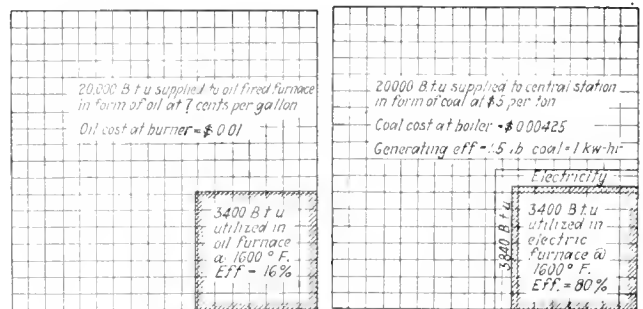 20,000 B t u supplied to oil fired furnace
in form of oil at 7 cents per gallon
Oil cost at burner = $ 0.01
3400 B t u
utilized in
oil furnace
@ 1600° F.
Eff = 16%
20000 B.t.u supplied to central station
in form of coal at $5 per ton
Coal cost at boiler = $ 0.00425
Generating eff = 1.5 lb coal = 1 kw-hr
Electricity
3840 B t u
3400 B.t.u
utilized in
electric
furnace @
1600° F.
Eff. = 80%